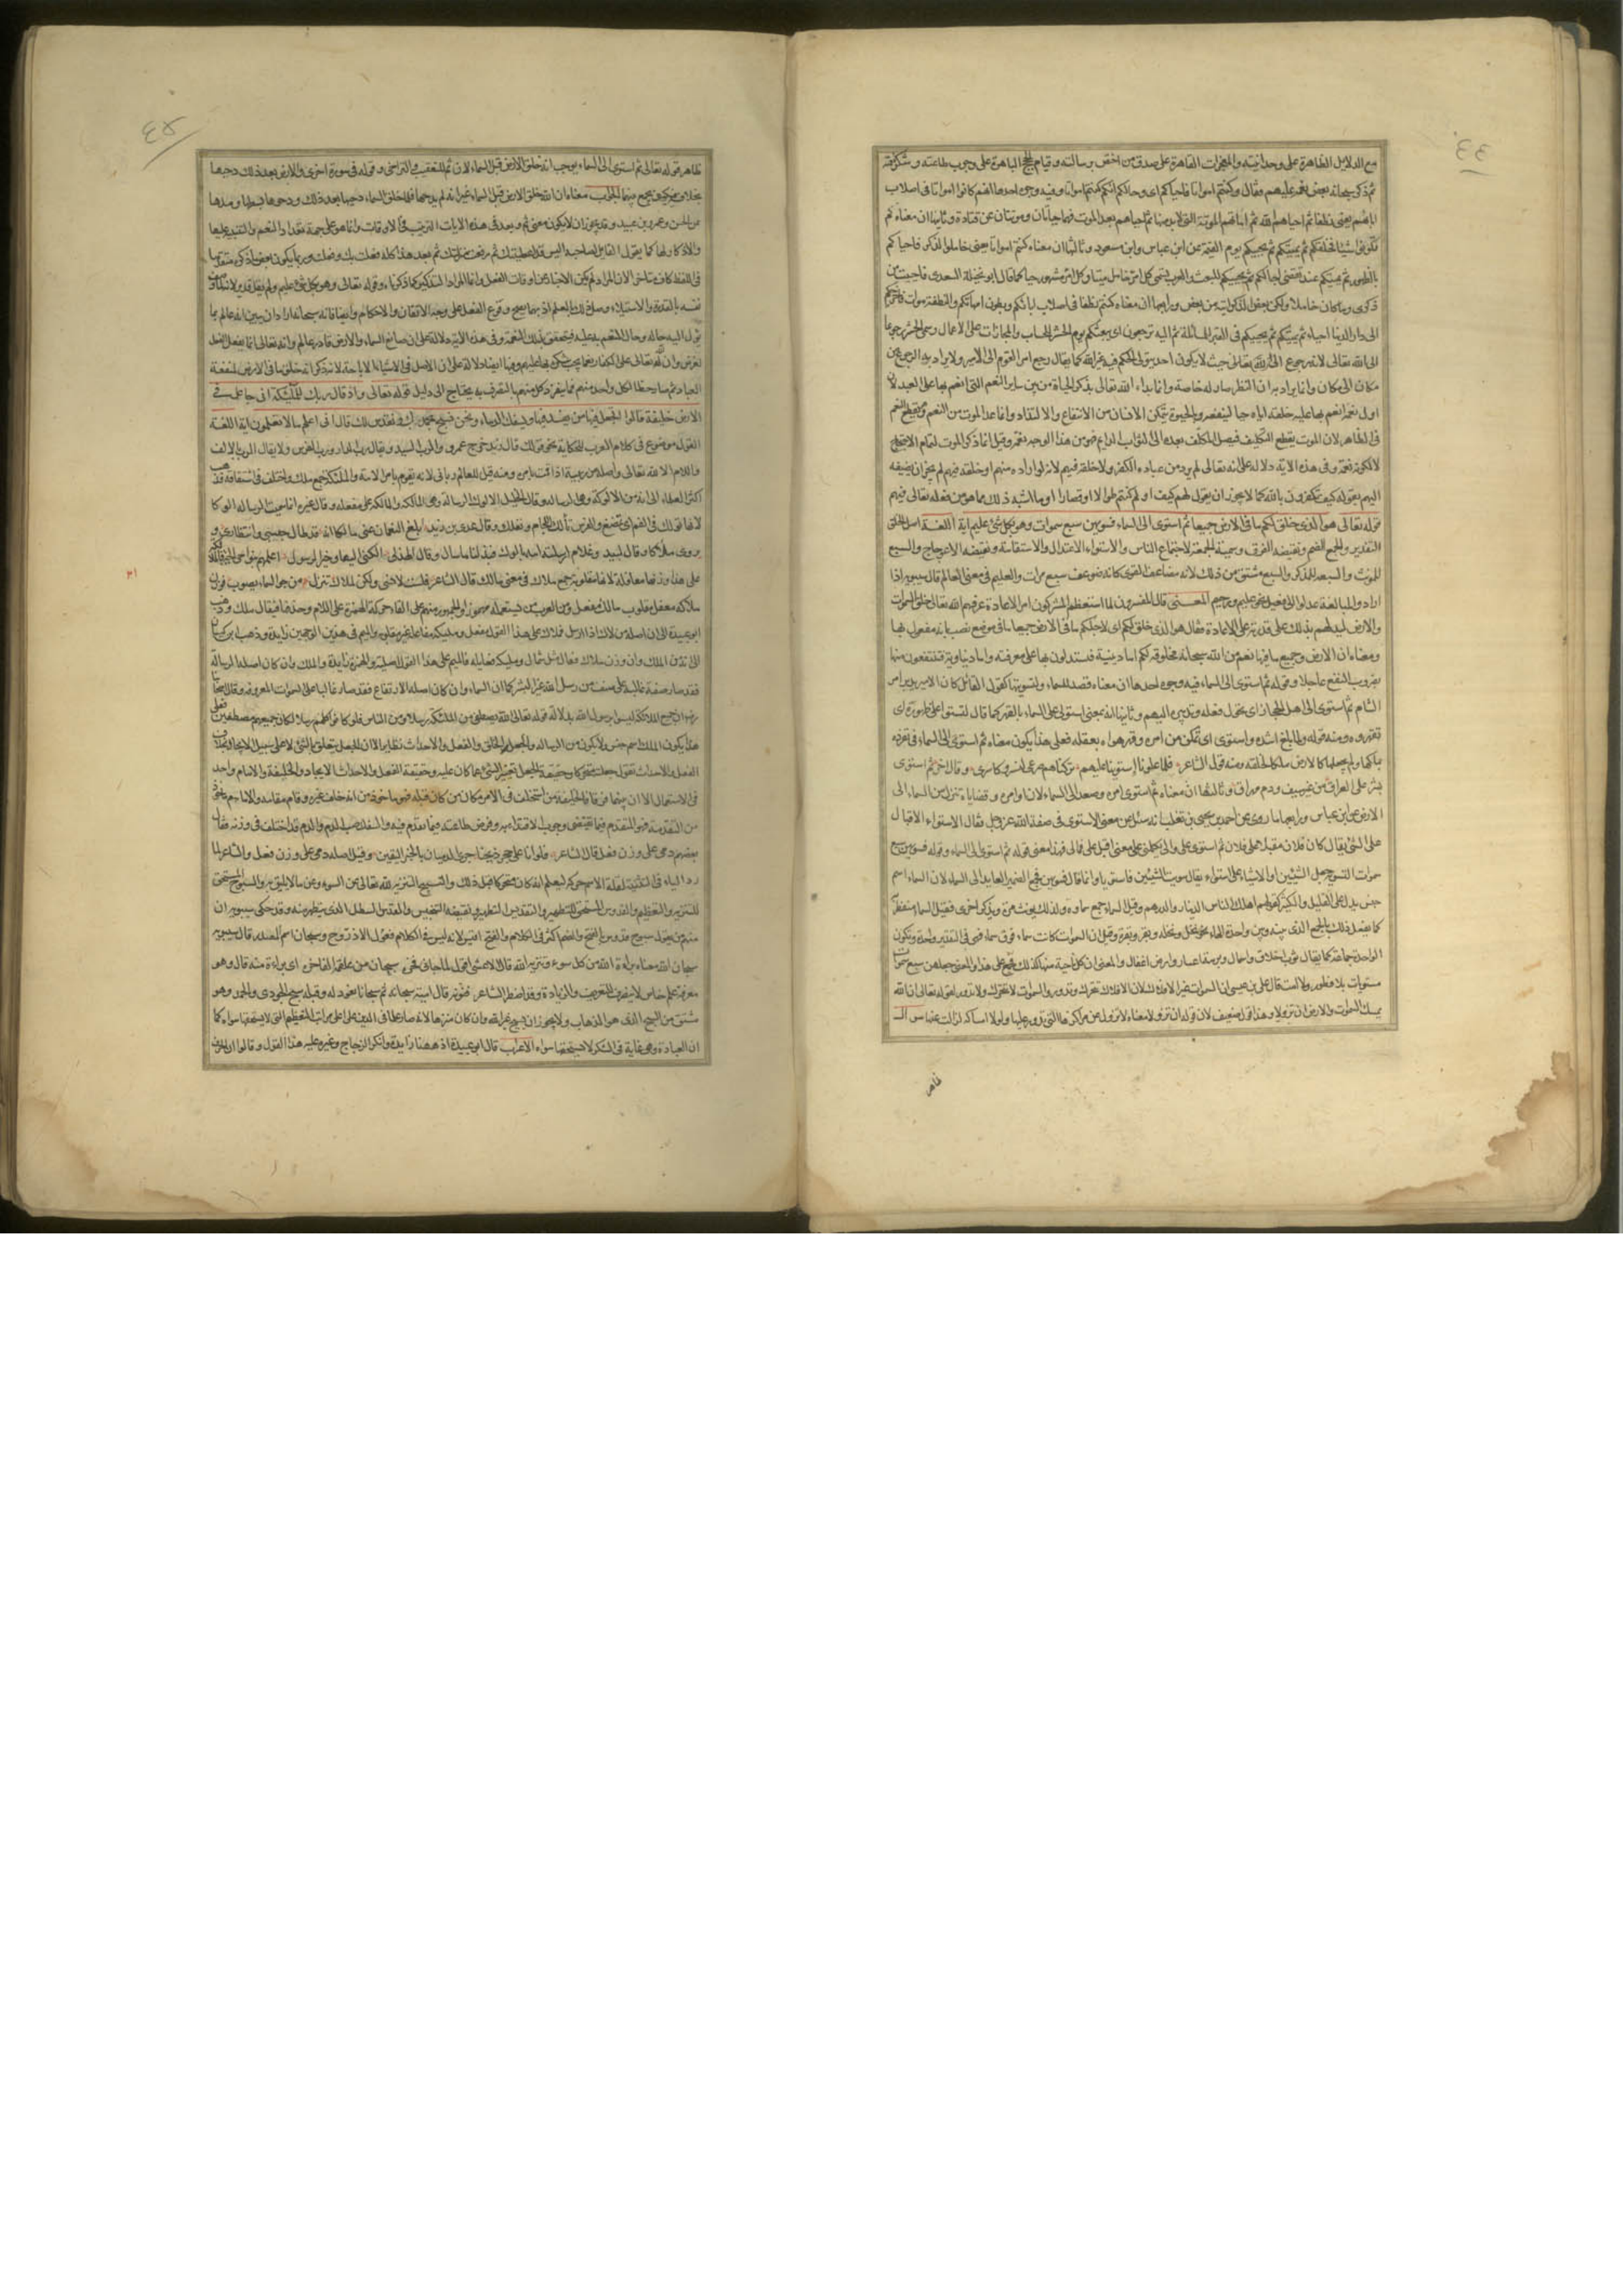 ٤٤
مع الدلايل الظاهرة على وحدانيته والمعجزات القاهرة على صدق من اختص برسالته وقيام الحجج الباهرة على وجوب طاعته وشكر نعمته
ثم ذكر سبحانه بعض نعمه عليهم فقال وكنتم امواتا فاحياكم اى وحالكم انكم كنتم امواتا وفيه وجوه احدها انهم كانوا امواتا فى اصلاب
ابائهم يعنى نطفا ثم احياهم الله ثم اماتهم الموتة التى لا بد منها ثم احياهم بعد الموت فهما حياتان وموتتان عن قتادة وثانيها ان معناه لم
تكونوا شيئا فخلقكم ثم يميتكم ثم يحييكم يوم القيمة عن ابن عباس وابن مسعود وثالثها ان معناه كنتم امواتا يعنى خاملوا الذكر فاحياكم
بالظهور ثم يميتكم عند تقضى اجالكم ثم يحييكم للبعث والعرب يسمى كل امر خامل ميتا وكل امر مشهور حيا كما قال ابو نخيلة السعدى فاحييت من
ذكرى وما كان خاملا ولكن بعض الذكر انبه من بعض ورابعها ان معناه كنتم نطفا فى اصلاب ابائكم وبطون امهاتكم والنطفة موات فاخرجكم
الى دار الدنيا احياء ثم يميتكم ثم يحييكم فى القبر للمسائلة ثم اليه ترجعون اى يبعثكم يوم الحشر للحساب والمجازات على الاعمال وسمى الحشر رجوعا
الى الله تعالى لانه رجوع الى حيث لا يكون احد يتولى الحكم فيه غير الله كما يقال رجع امر القوم الى الامير ولا يراد به الرجوع من
مكان الى مكان وانما يراد به ان النظر صار له خاصة وانما بداء الله تعالى بذكر الحياة من بين ساير النعم التى انعم بها على العبد لان
اول نعمة انعم بها عليه خلقه اياه حيا لينفعه وبالحيوة يتمكن الانسان من الانتفاع والالتذاذ وانما عد الموت من النعم وهو يقطع النعم
فى الظاهر لان الموت يقطع التكليف فيصل المكلف بعده الى الثواب الدايم فهو من هذا الوجه نعمة وقيل انما ذكر الموت لتمام الاحتجاج
لا لكونه نعمة وفى هذه الاية دلالة على انه تعالى لم يرد من عباده الكفر ولا خلقه فيهم لانه لو اراده منهم او خلقه فيهم لم يجز ان يضيفه
اليهم بقوله كيف تكفرون بالله كما لا يجوز ان يقول لهم كيف او لم كنتم طوالا او قصارا او ما اشبه ذلك مما هو من فعله تعالى فيهم
قوله تعالى هو الذى خلق لكم ما فى الارض جميعا ثم استوى الى السماء فسويهن سبع سموات وهو بكل شئ عليم اية اللغة اصل الخلق
التقدير والجمع الضم ونقيضه الفرق وسميت الجمعة لاجتماع الناس والاستواء الاعتدال والاستقامة ونقيضه الاعوجاج والسبع
للمونث والسبعة للمذكر والسبع مشتق من ذلك لانه مضاعف القوى كانه ضوعف سبع مرات والعليم فى معنى العالم قال سيبويه اذا
ارادوا المبالغة عدلوا الى فعيل نحو عليم ورحيم المعنى قال المفسرون لما استعظم المشركون امر الاعادة عرفهم الله تعالى خلق السموات
والارض ليدلهم بذلك على قدرته على الاعادة فقال هو الذى خلق لكم اى لاجلكم ما فى الارض جميعا ما فى موضع نصب بانه مفعول بها
ومعناه ان الارض وجميع ما فيها نعم من الله سبحانه مخلوقة لكم اما دينية فتستدلون بها على معرفته واما دنياوية فتنتفعون منها
بضروب النفع عاجلا وقوله ثم استوى الى السماء فيه وجوه احدها ان معناه قصد للسماء ولتسويتها كقول القائل كان الامير يدبر امر
الشام ثم استوى الى اهل الحجاز اى تحول فعله وتدبيره اليهم وثانيها انه بمعنى استولى على السماء بالقهر كما قال لتستووا على ظهوره اى
تقهروه ومنه قوله ولما بلغ اشده واستوى اى تمكن من امره وقهر هواه بعقله فعلى هذا يكون معناه ثم استوى الى السماء فى تفرده
بملكها ولم يجعلها كالارض ملكا لخلقه ومنه قول الشاعر فلما علونا واستوينا عليهم تركناهم صرعى لنسر وكاسر وقال اخر ثم استوى
بشر على العراق من غير سيف ودم مهراق وثالثها ان معناه ثم استوى امره وصعد الى السماء لان اوامره وقضاياه تنزل من السماء الى
الارض عن ابن عباس ورابعها ما روى عن احمد بن يحيى بن ثعلب انه سئل عن معنى الاستوى فى صفة الله عز وجل فقال الاستواء الاقبال
على الشئ يقال كان فلان مقبلا على فلان ثم استوى على والى يكلمنى على معنى اقبل على والى فهذا معنى قوله ثم استوى الى السماء وقوله فسويهن سبع
سموات التسوية جعل الشيئين او الاشياء على استواء يقال سويت الشيئين فاستويا وانما قال فسويهن فجمع الضمير العايد الى السماء لان السماء اسم
جنس يدل على القليل والكثير كقولهم اهلك الناس الدينار والدرهم وقيل السماء جمع سماوة ولذلك يونث مرة ويذكر اخرى فقيل السماء منفطر به
كما يفعل ذلك بالجمع الذى بينه وبين واحدة الهاء نحو نخل ونخلة وبقر وبقرة وقيل ان السموات كانت سماء فوق سماء فهى فى التقدير واحدة وتكون
الواحدة جماعة كما يقال ثوب اخلاق واسمال وبرمة اعشار وارض اغفال والمعنى ان كل ناحية منها كذلك فجمع على هذا والمعنى جعلهن سبع سموات
مستويات بلا فطور ولا امت قال على بن عيسى ان السموات غير الافلاك لان الافلاك تتحرك وتدور والسموات لا تتحرك ولا تدور لقوله تعالى ان الله
يمسك السموات والارض ان تزولا وهذا قول ضعيف لان قوله ان تزولا معناه لا تزول عن مراكزها التى تدور عليها ولولا امساكه لزالت عنها سؤال
ظاهر
٤٥
ظاهر قوله تعالى ثم استوى الى السماء يوجب انه خلق الارض قبل السماء لان ثم للتعقيب والتراخى وقوله فى سورة اخرى والارض بعد ذلك دحيها
بخلافه فكيف يجمع بينهما الجواب معناه ان الله خلق الارض قبل السماء غير انه لم يدحها فلما خلق السماء دحيها بعد ذلك ودحوها بسطها ومدها
عن الحسن وعمرو بن عبيد وقد يجوز ان لا يكون معنى ثم وبعد فى هذه الايات الترتيب فى الاوقات وانما هو على جهة تعداد النعم والتنبيه عليها
والاذكار لها كما يقول القايل لصاحبه اليس قد اعطيتك ثم رفعت منزلتك ثم بعد هذا كله فعلت بك وفعلت وربما يكون بعض ما ذكره متقدما
فى اللفظ كان متاخرا لان المراد لم يكن الاخبار عن اوقات الفعل وانما المراد التذكير كما ذكرناه وقوله تعالى وهو بكل شئ عليم ولم يقل قدير لانه لما وصف
نفسه بالقدرة والاستيلاء وصل ذلك بالعلم اذ بهما يصح وقوع الفعل على وجه الاتقان والاحكام وايضا فانه سبحانه اراد ان يبين انه عالم بما
يؤل اليه حاله وحال المنعم به عليه فيتحقق بذلك النعمة وفى هذه الاية دلالة على ان صانع السماء والارض قادر عالم وانه تعالى انما يفعل الفعل
لغرض وان لله تعالى على الكفار نعما يجب شكره بها عليهم وفيها ايضا دلالة على ان الاصل فى الاشياء الاباحة لانه ذكر انه خلق ما فى الارض لمنفعة
العباد ثم صار حظا لكل واحد منهم فما يتفرد كل منهم بالتصرف فيه يحتاج الى دليل قوله تعالى واذ قال ربك للملئكة انى جاعل فى
الارض خليفة قالوا اتجعل فيها من يفسد فيها ويسفك الدماء ونحن نسبح بحمدك ونقدس لك قال انى اعلم ما لا تعلمون اية اللغة
القول موضوع فى كلام العرب للحكاية نحو قولك قال زيد خرج عمرو والرب السيد ويقال رب الدار ورب الفرس ولا يقال الرب بالالف
واللام الا لله تعالى واصله من ربيته اذا قمت بامره ومنه قيل للعالم ربانى لانه يقوم بامر الامة والملئكة جمع ملك واختلف فى اشتقاقه فذهب
اكثر العلماء الى انه من الالوكة وهى الرسالة وقال الخليل الالوك الرسالة وهى المالكة والمالكة على مفعلة وقال غيره انما سميت الرسالة الوكا
لانها تولك فى الفم اى تمضغ والفرس تألك اللجام وتعلك وقال عدى بن زيد ابلغ النعمان عنى مالكا انه قد طال حبسى وانتظارى و
يروى ملأكا وقال لبيد وغلام ارسلته امه بالوك فبذلنا ما سال وقال الهذلى الكنى اليها وخير الرسول اعلمهم بنواحى الخبر فالملك
على هذا وزنها معافلة لانها مقلوبة جمع ملاك فى معنى مالك قال الشاعر فلست لانسى ولكن لملاك تنزل من جو السماء يصوب فوزن
ملأك معفل مقلوب مالك مفعل ومن العرب من يستعمله مهموزا والجمهور منهم على القاء حركة الهمزة على اللام وحذفها فيقال ملك وذهب
ابو عبيدة الى ان اصله من لاك اذا ارسل فملاك على هذا القول مفعل وملئكة مفاعلة غير مقلوبة والميم فى هذين الوجهين زايدة وذهب ابن كيسان
الى انه من الملك وان وزن ملاك فعال مثل شمال وملئكة فعايلة فالميم على هذا القول اصلية والهمزة زايدة والملك وان كان اصله الرسالة
فقد صار صفة غالبة على صنف من رسل الله غير البشر كما ان السماء وان كان اصله الارتفاع فقد صار غالبا على السموات المعروفة وقال اصحابنا
رضى الله عنهم ان جميع الملائكة ليسوا برسل الله بدلالة قوله تعالى الله يصطفى من الملئكة رسلا ومن الناس فلو كانوا كلهم رسلا لكان جميعهم مصطفين فعلى
هذا يكون الملك اسم جنس ولا يكون من الرسالة والجعل والخلق والفعل والاحداث نظاير الا ان الجعل يتعلق بالشئ لا على سبيل الايجاد بخلاف
الفعل والاحداث تقول جعلته متحركا وحقيقة الجعل تغيير الشئ عما كان عليه وحقيقة الفعل والاحداث الايجاد والخليفة والامام واحد
فى الاستعمال الا ان بينهما فرقا فالخليفة من استخلف فى الامر مكان من كان قبله فهو ماخوذ من انه خلف غيره وقام مقامه والامام ماخوذ
من التقدم فهو المتقدم فيما يقتضى وجوب الاقتداء به وفرض طاعته فيما تقدم فيه والسفك صب الدم والدم قد اختلف فى وزنه فقال
بعضهم دمى على وزن فعل قال الشاعر فلو انا على حجر ذبحنا جرى الدميان بالخبر اليقين وقيل اصله دمى على وزن فعل والشاعر لما
رد الياء فى التثنية لقلة الاسم حركه ليعلم انه كان متحركا قبل ذلك والتسبيح التنزيه لله تعالى عن السوء وعن ما لا يليق به والسبوح المستحق
للتنزيه والتعظيم والقدوس المستحق للتطهير والتقديس التطهير ونقيضه التنجيس والقدس السطل الذى يتطهر منه وقد حكى سيبويه ان
منهم من يقول سبوح قدوس بالفتح والضم اكثر فى الكلام والفتح اقيس لانه ليس فى الكلام فعول الا ذروح وسبحان اسم المصدر قال سيبويه
سبحان الله معناه براءة الله من كل سوء وتنزيه الله قال الاعشى اقول لما جاءنى فخره سبحان من علقمة الفاخر اى براءة منه قال وهو
معرفة علم خاص لا ينصرف للتعريف والزيادة وقد اضطر الشاعر فنونه قال امية سبحانه ثم سبحانا نعوذ له وقبله سبح الجودى والجمد وهو
مشتق من السبح الذى هو الذهاب ولا يجوز ان يسبح غير الله وان كان منزها لانه صار علما فى الدين على اعلى مراتب التعظيم التى لا يستحقها سواه كما
ان العبادة وهى غاية فى الشكر لا يستحقها سواه الاعراب قال ابو عبيدة اذ ههنا زايدة وانكر الزجاج وغيره عليه هذا القول وقالوا ان الحرف